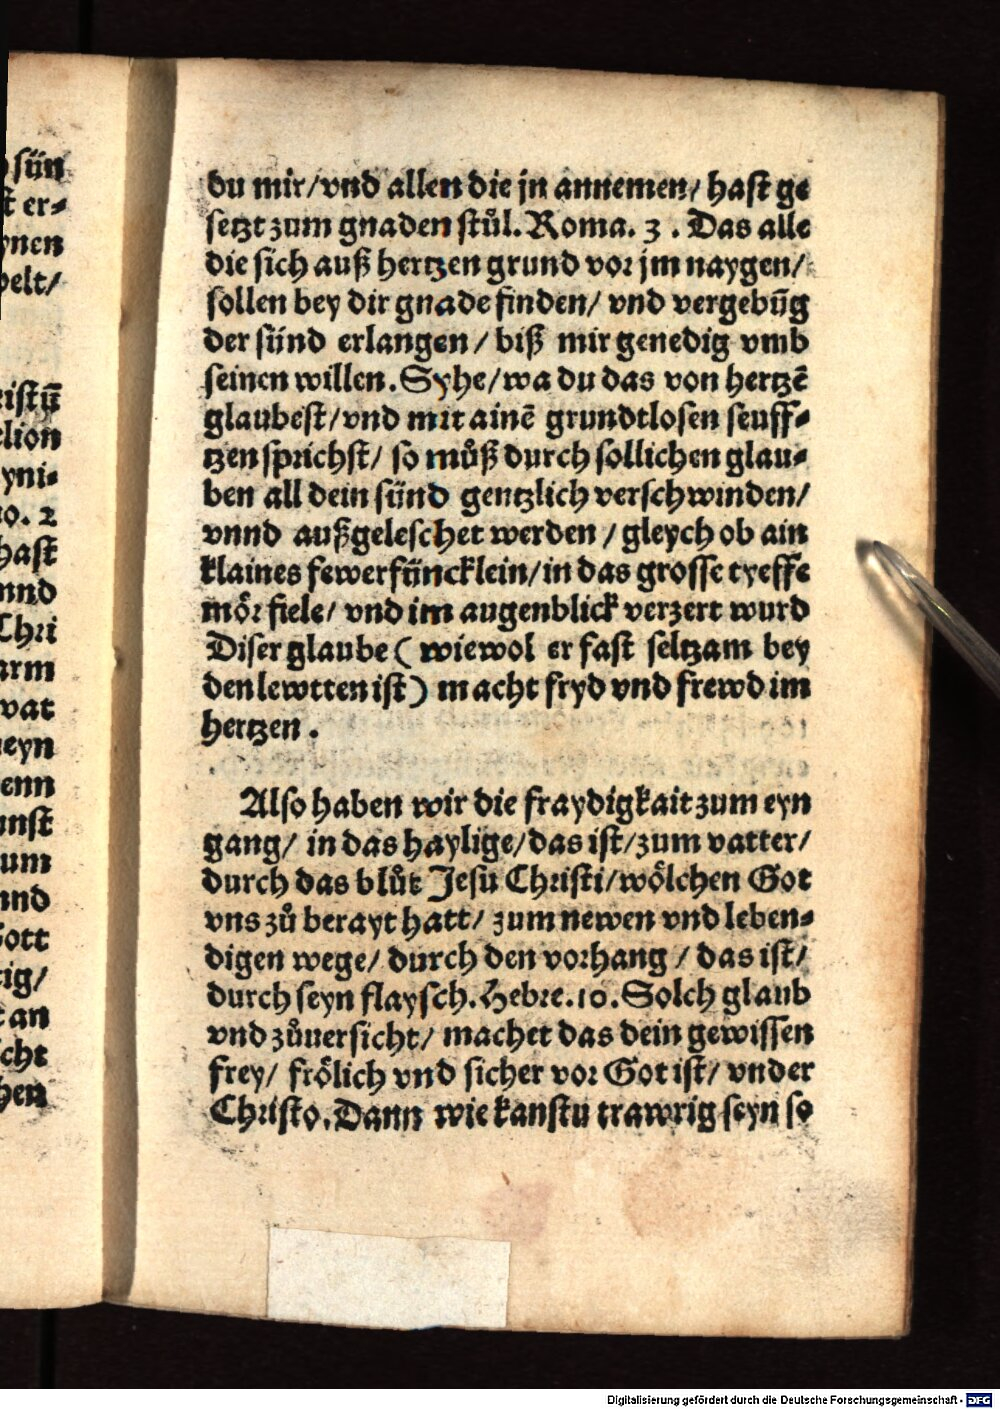 sün
er-
ynen
pelt/
istū
lion
yni-
o. 2
hast
nnd
Chri
arm
wat
eyn
enn
unst
um
nnd
Gott
tig/
an
cht
hen
du mir/vnd allen die jn annemen/ hast ge
setzt zum gnaden stůl. Roma. 3 . Das alle
die sich auß hertzen grund vor jm naygen/
sollen bey dir gnade finden/ vnd vergebūg
der sünd erlangen / biß mir genedig vmb
seinen willen. Syhe/wa du das von hertzē
glaubest/vnd mit ainē grundtlosen seuff-
tzen sprichst/ so můß durch sollichen glau-
ben all dein sünd gentzlich verschwinden/
vnnd außgeleschet werden / gleych ob ain
klaines fewerfüncklein/in das grosse tyeffe
mör fiele/ vnd im augenblick verzert wurd
Diser glaube ( wiewol er fast seltzam bey
den lewtten ist ) macht fryd vnd frewd im
hertzen .
Also haben wir die fraydigkait zum eyn
gang/ in das haylige/das ist/zum vatter/
durch das blůt Jesu Christi/wölchen Got
vns zů berayt hatt/ zum newen vnd leben-
digen wege/ durch den vorhang / das ist/
durch seyn flaysch. Hebre. 10. Solch glaub
vnd zůuersicht/ machet das dein gewissen
frey/ frölich vnd sicher vor Got ist/ vnder
Christo. Dann wie kanstu trawrig seyn so
Digitalisierung gefördert durch die Deutsche Forschungsgemeinschaft - DFG